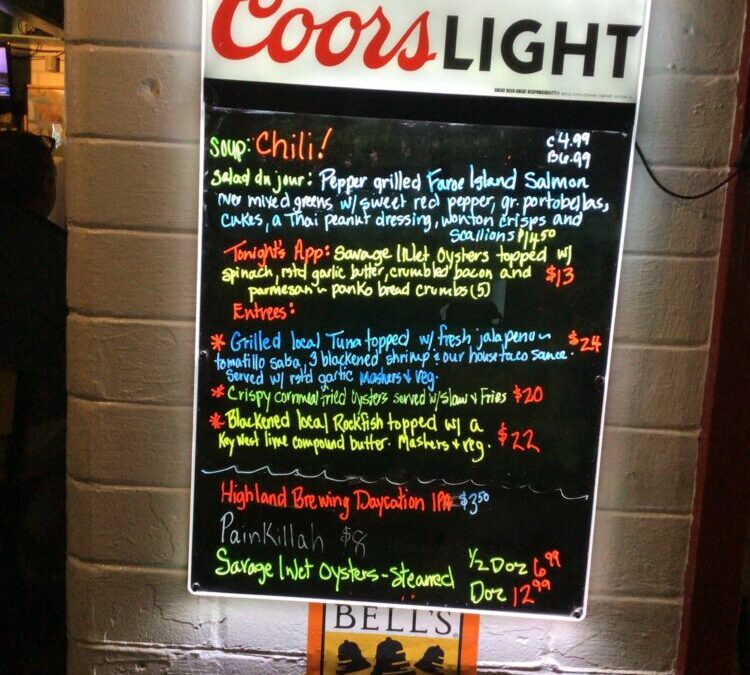 Coors LIGHT
GREAT BEER GREAT RESPONSIBILITY®
Soup: Chili! C 4.99
B 6.99
Salad du jour: Pepper grilled Faroe Island Salmon
over mixed greens w/ sweet red pepper, gr. portobellas,
cukes, a Thai peanut dressing, wonton crisps and
Scallions $14.50
Tonight's App: Savage Inlet Oysters topped w/
spinach, rstd garlic butter, crumbled bacon and $13
parmesan panko bread crumbs (5)
Entrees:
* Grilled local Tuna topped w/ fresh jalapeno $24
tomatillo salsa, 3 blackened shrimp & our house taco sauce.
Served w/ rstd garlic Mashers & veg.
* Crispy cornmeal fried oysters served w/ slaw & Fries $20
* Blackened local Rockfish topped w/ a
Key West lime compound butter. Mashers + veg. $22
Highland Brewing Daycation IPA $3.50
PainKillah $8
Savage Inlet Oysters - Steamed 1/2 Doz 6.99
Doz 12.99
BELL'S